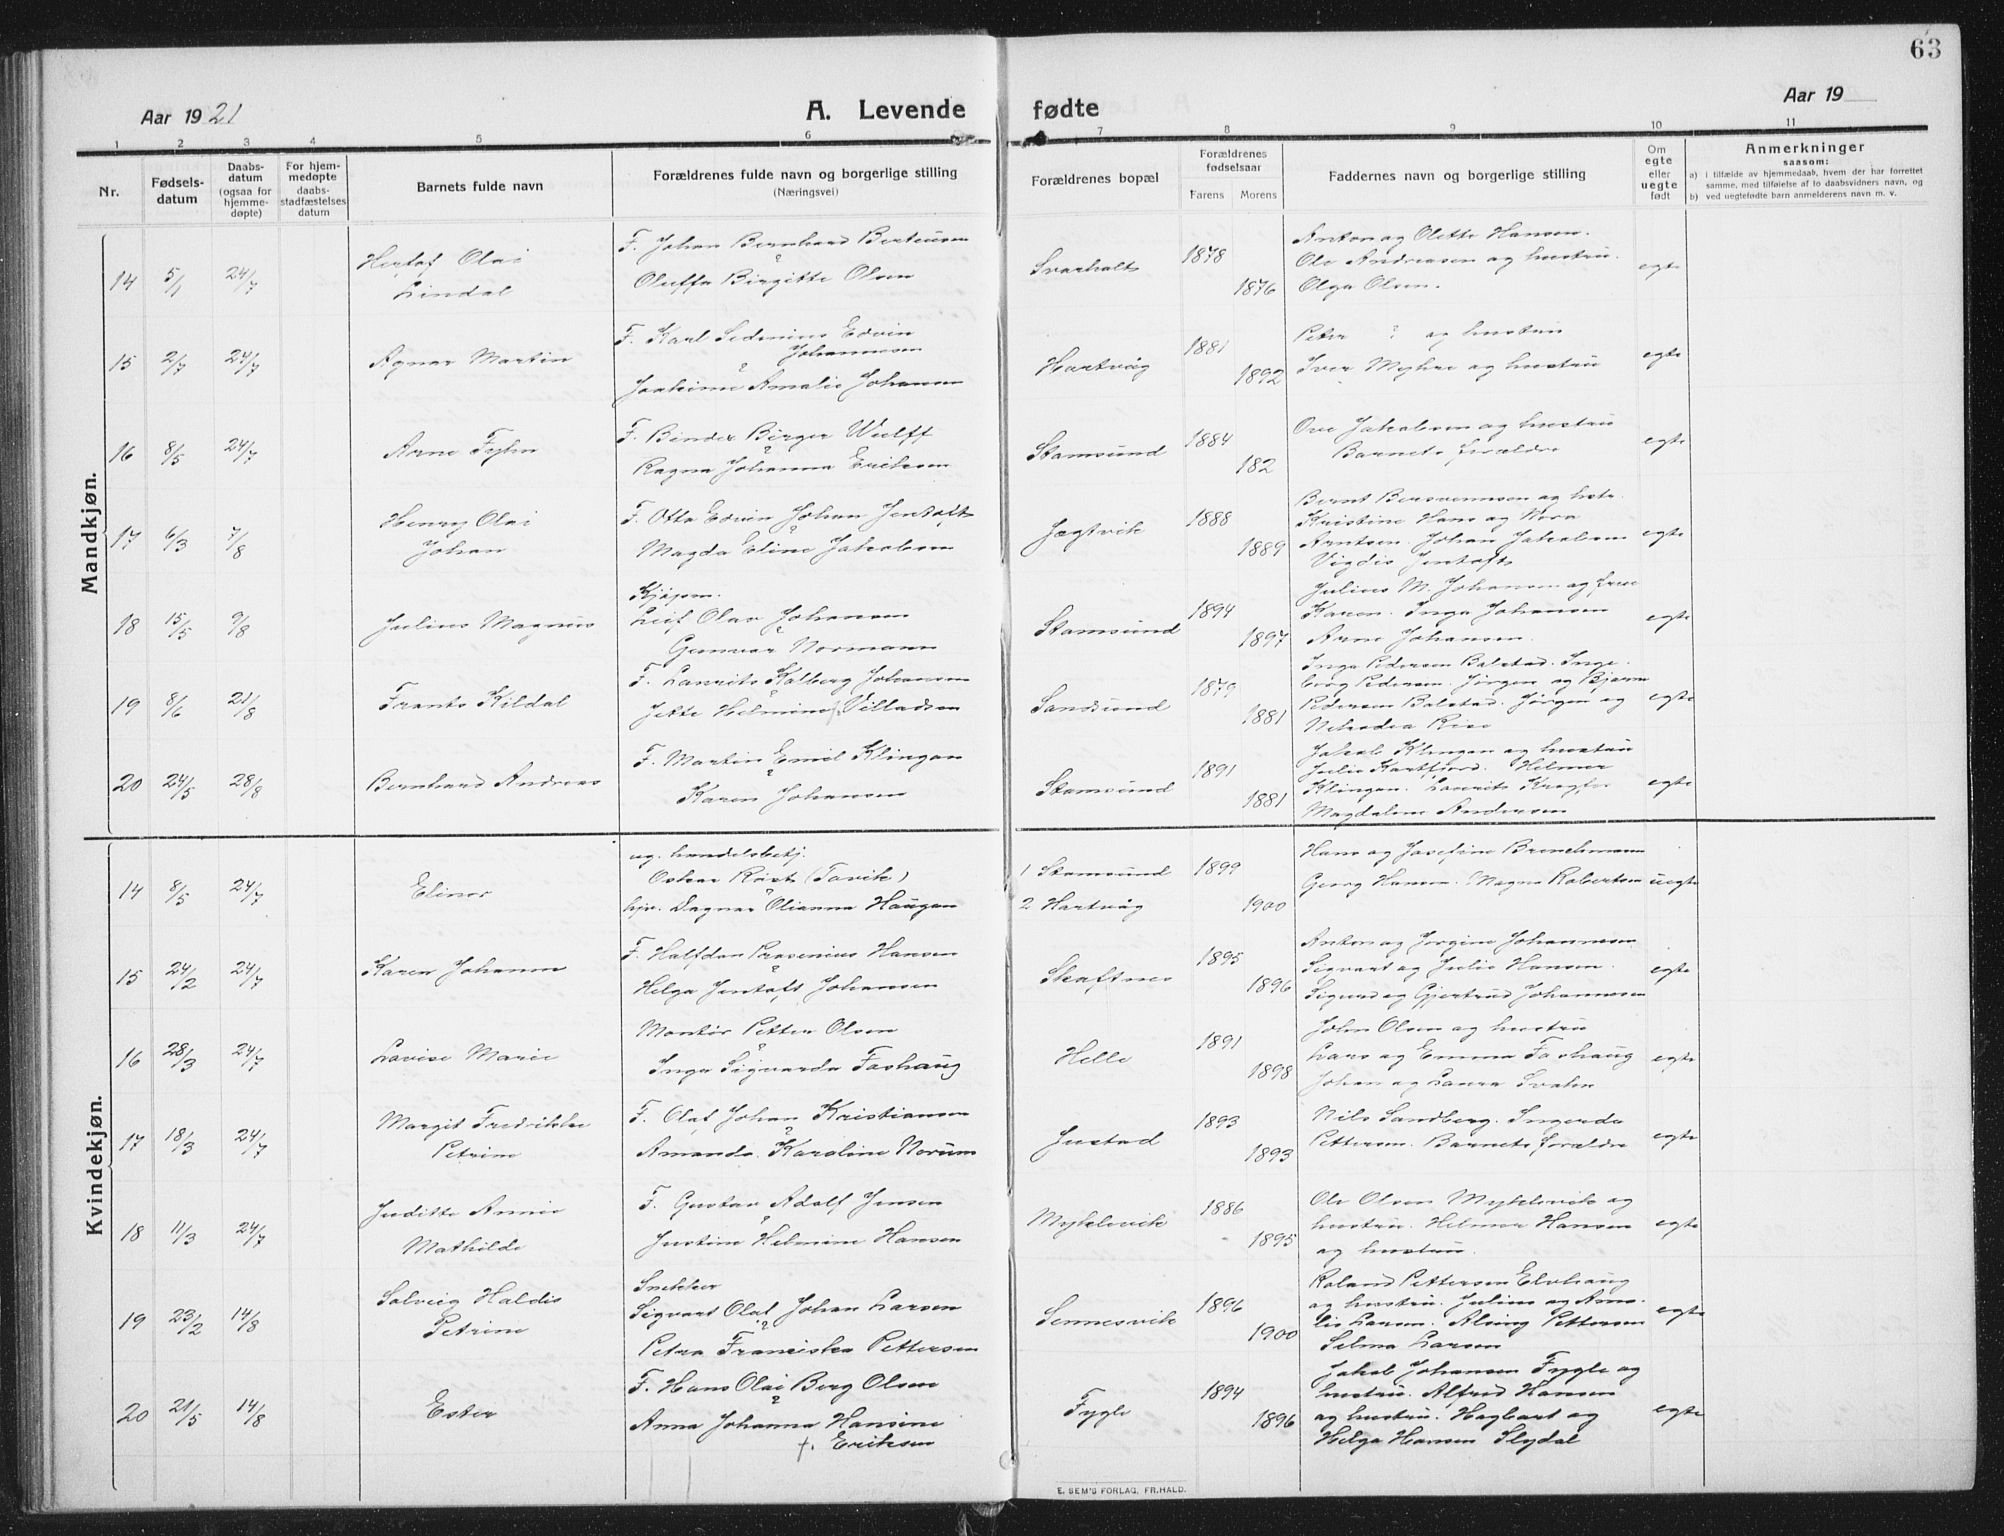 63
Aar 1921
A. Levende fødte
Aar 19
1 2 3 4 5 6 7 8 9 10 11
Nr.
Fødsels-
datum
Daabs-
datum
(ogsaa for
hjemme-
døpte)
For hjem-
medøpte
daabs-
stadfæstelses
datum
Barnets fulde navn
Forældrenes fulde navn og borgerlige stilling
(Næringsvei)
Forældrenes bopæl
Forældrenes
fødselsaar
Farens Morens
Faddernes navn og borgerlige stilling
Om
egte
eller
uegte
født
Anmerkninger
saasom:
a) i tilfælde av hjemmedaab, hvem der har forrettet
samme, med tilføielse af to daabsvidners navn, og
b) ved uegtefødte barn anmelderens navn m. v.
Mandkjøn.
14 5/1 24/7
Hertof Olai
Lindal
F. Johan Bernhard Berteusen
Oluffa Birgitte Olsen
Svarholt
1878
1876
Anton og Olette Hansen.
Ole Andreasen og hustru.
Olga Olsen.
egte
15 2/7 24/7
Agnar Martin
F. Karl Sedenius Edvin
Johannesen
Joakime Amalie Johansen
Hartvåg
1881
1892
Peter ? og hustru
Iver Myhre og hustru
egte
16 8/5 24/7
Arne Fyhn
F. Binder Birger Wulff
Ragna Johanna Eriksen
Stamsund
1884
182
Ove Jakobsen og hustru
Barnets forældre
egte
17 6/3 7/8
Henry Olai
Johan
F. Otto Edvin Johan Jentoft
Magda Eline Jakobsen
Jægtvik
1888
1889
Bernt Bersvennsen og hstr.
Kristine Hans og Nora
Arntsen. Johan Jakobsen
Vigdis Jentoft
egte
18 15/5 9/8
Julius Magnus
Kjøpm.
Leif Olav Johansen
Gunvor Normann
Stamsund
1894
1897
Julius M. Johansen og frue
Karen. Inga Johansen
Arne Johansen.
egte
19 8/6 21/8
Frants Kildal
F. Laurits Kolberg Johansen
Jette Helmine f. Villadsen
Sandsund
1879
1881
Inga Pedersen Balstad. Inge-
borg Pedersen. Jørgen og Bjarne
Pedersen Balstad. Jørgen og
Rise
egte
20 24/5 28/8
Bernhard Andreas
F. Martin Emil Klingan
Karen Johansen
Stamsund
1891
1881
Jakob Klingan og hustru
Julie Kartfjord. Helmer
Klingan. Laurits
Magdalene Andersen
egte
Kvindekjøn.
14 8/5 24/7
Elinor
ug. handelsbetj.
Oskar Røst (Tavik)
hjv. Dagnar Olianna Haugan
1 Stamsund
2 Hartvåg
1899
1900
Hans og Josefine Brinchmann
Georg Hansen. Magna Robertsen
uegte
15 24/2 24/7
Karen Johanne
F. Halfdan Prasenius Hansen
Helga Jentoft Johansen
Skaftnes
1895
1896
Anton og Jorgine Johannesen
Sigvart og Julie Hansen.
Sigurd og Gjertrud Johannesen
egte
16 28/3 24/7
Lovise Marie
Montør Petter Olsen
Inga Sigvarda Foshaug
Helle
1891
1898
John Olsen og hustru
Lars og Emma Foshaug
Johan og Laura Svahn
egte
17 18/3 24/7
Margit Fredrikke
Petrine
F. Olaf Johan Kristiansen
Amanda Karoline Norum
Justad
1893
1893
Nils Sandberg. Ingerda
Pettersen. Barnets forældre
egte
18 11/3 24/7
Juditte Annie
Mathilde
F. Gustav Adolf Jensen
Justine Helmine Hansen
Myklevik
1886
1895
Ole Olsen Myklevik og
hustru. Helmer Hansen
og hustru.
egte
19 23/2 14/8
Solveig Haldis
Petrine
Snekker
Sigvart Olaf Johan Larsen
Petra Franciska Pettersen
Sennesvik
1896
1900
Roland Pettersen Elvhaug
og hustru. Julius og Ama-
lie Larsen. Alsing Pettersen
Selma Larsen
egte
20 21/5 14/8
Ester
F. Hans Olai Berg Olsen
Anna Johanna Hansine
f. Eriksen
Fygle
1894
1896
Jakob Johansen Fygle og
hustru. Alfred Hansen
og hustru. Hagbart og
Helga Hansen Slydal
egte
E. SEM'S FORLAG, FR.HALD.